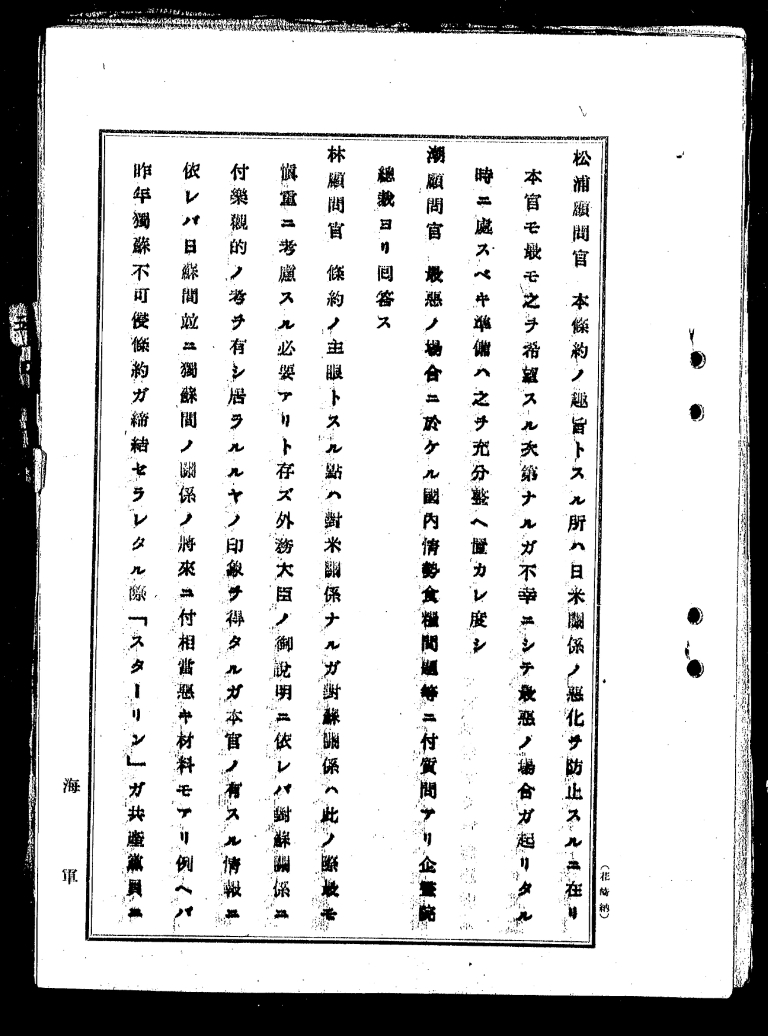 松浦顧問官　本條約ノ趣旨トスル所ハ日米關係ノ惡化ヲ防止スルニ在リ
本官モ最モ之ヲ希望スル次第ナルガ不幸ニシテ最惡ノ場合ガ起リタル
時ニ處スベキ準備ハ之ヲ充分整ヘ置カレ度シ
潮顧問官　最惡ノ場合ニ於ケル國內情勢食糧問題等ニ付質問アリ企畫院
總裁ヨリ回答ス
林顧問官　條約ノ主眼トスル點ハ對米關係ナルガ對蘇關係ハ此ノ際最モ
愼重ニ考慮スル必要アリト存ズ外務大臣ノ御說明ニ依レバ對蘇關係ニ
付樂觀的ノ考ヲ有シ居ラルルヤノ印象ヲ得タルガ本官ノ有スル情報ニ
依レバ日蘇間竝ニ獨蘇間ノ關係ノ將來ニ付相當惡キ材料モアリ例ヘバ
昨年獨蘇不可侵條約ガ締結セラレタル際「スターリン」ガ共產黨員ニ
海軍